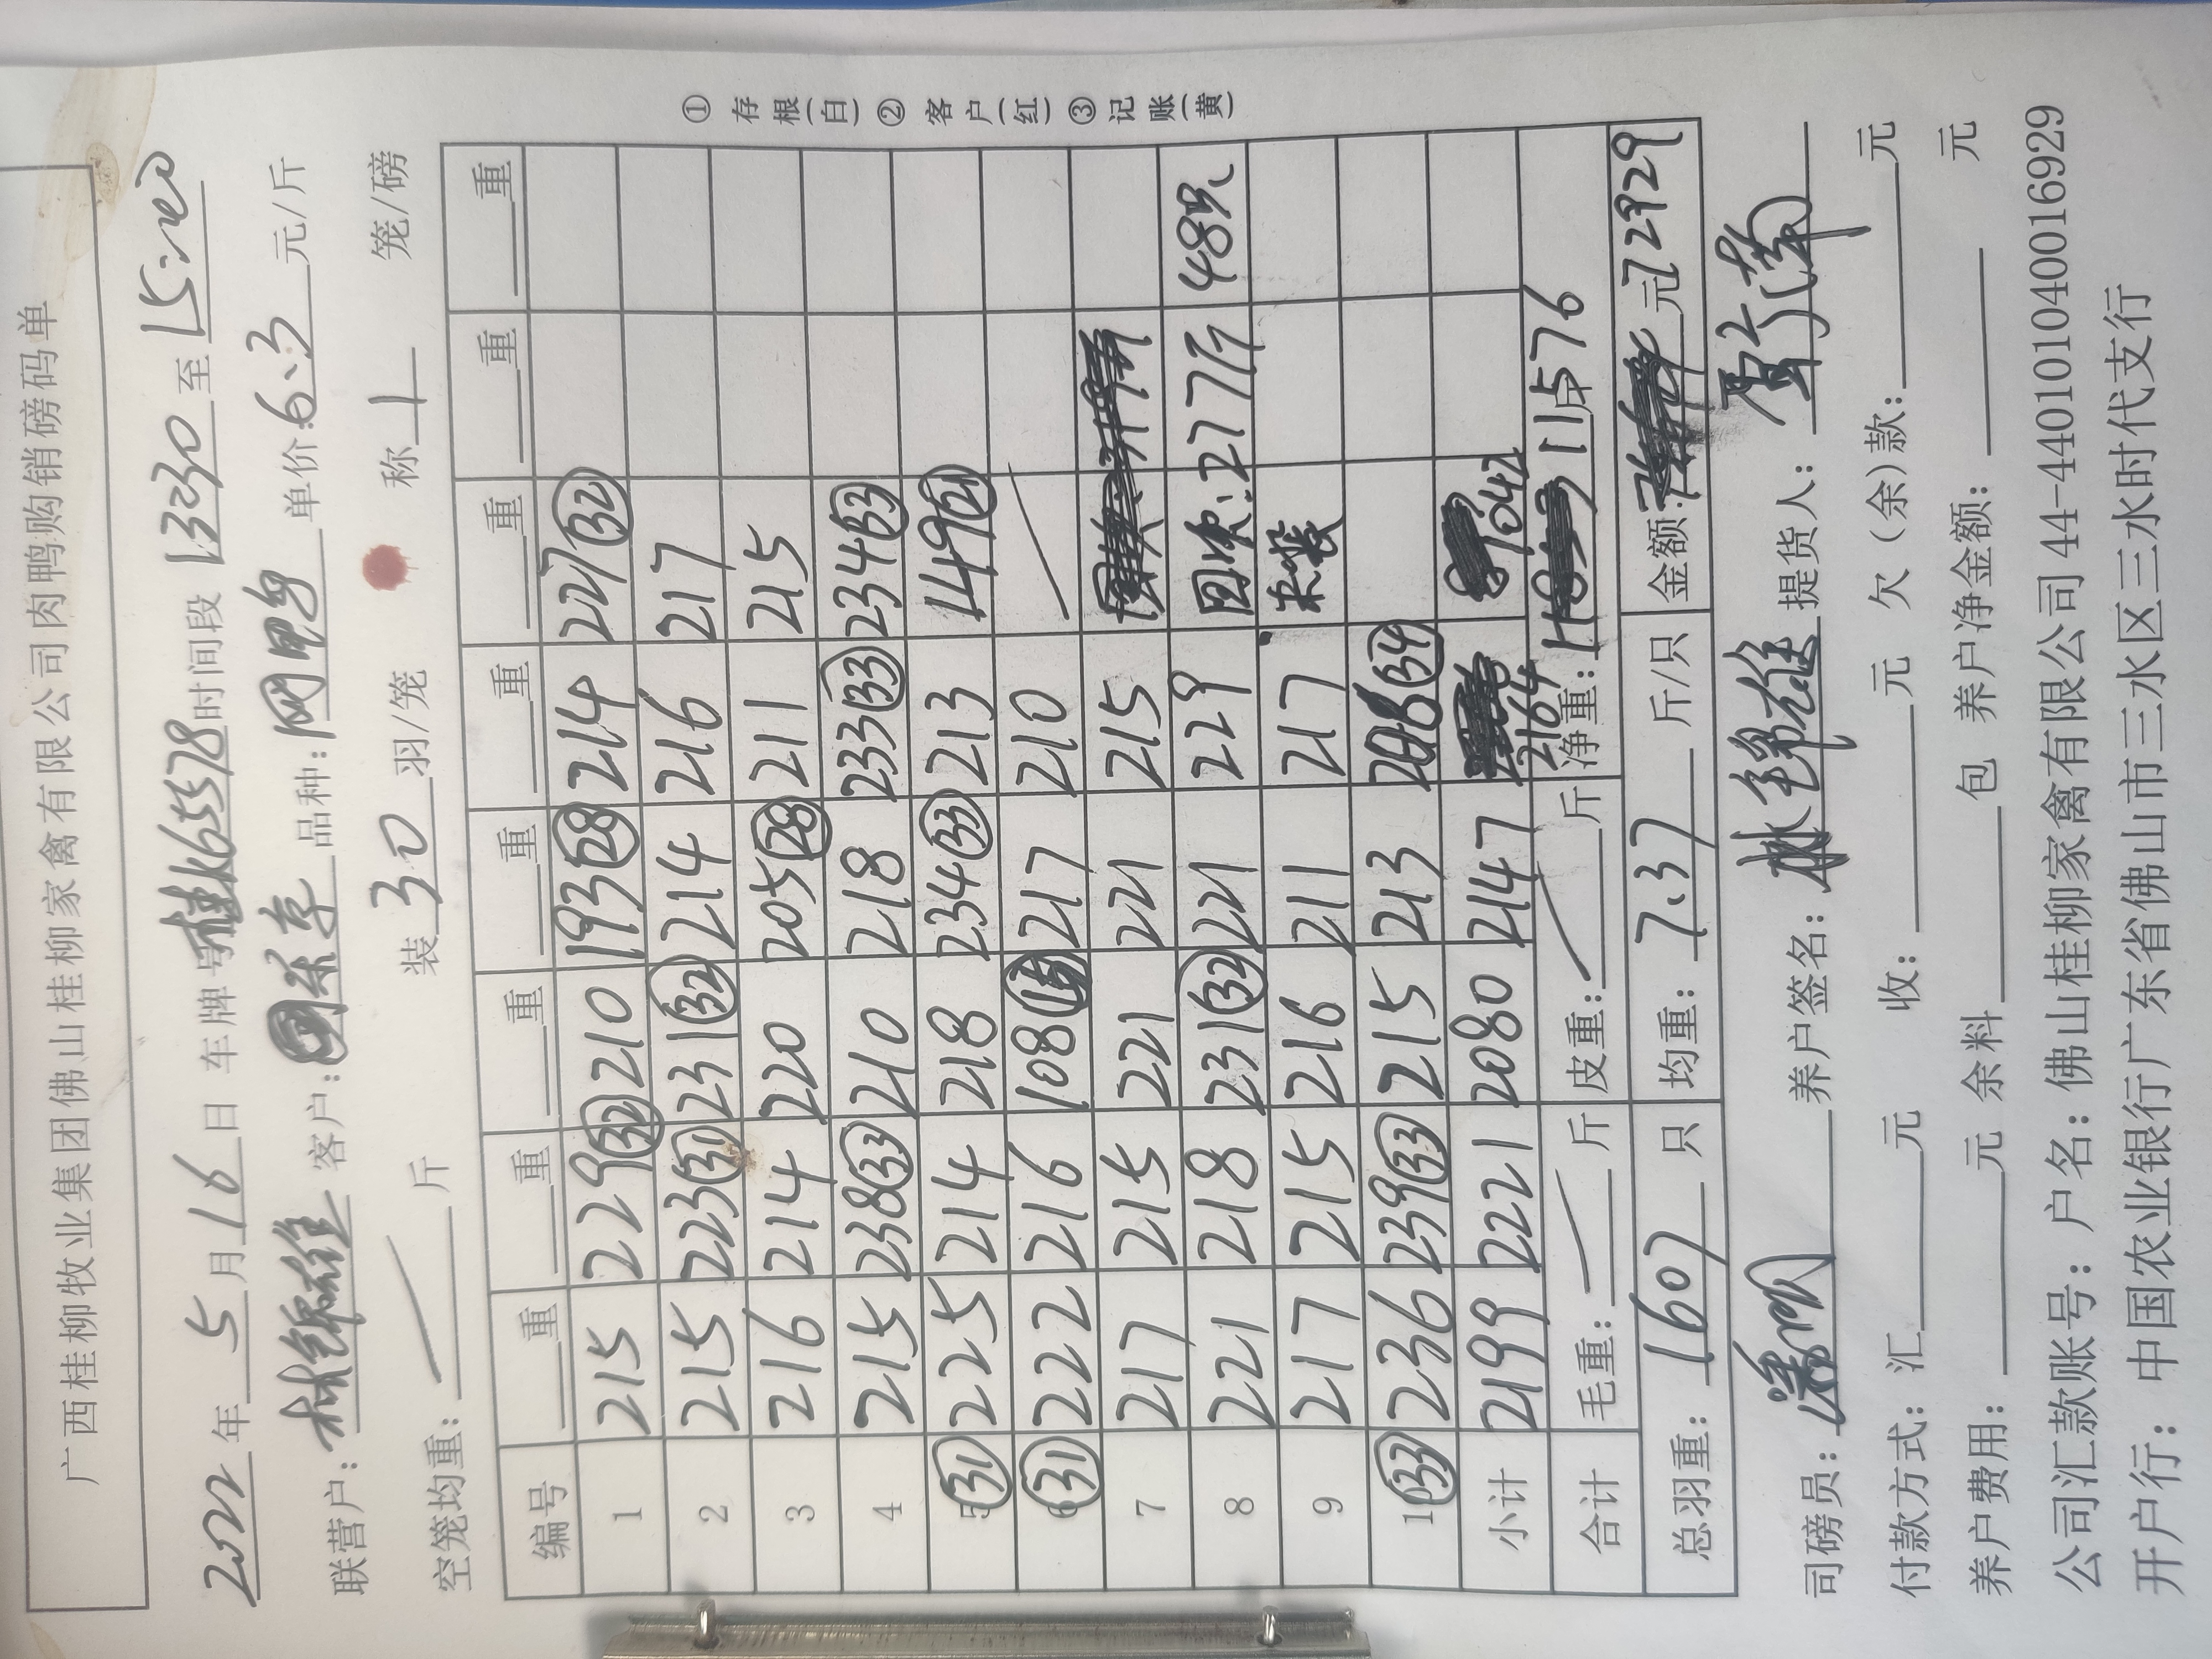 广西桂柳牧业集团佛山桂柳家禽有限公司肉鸭购销磅码单
2022年5月16日 车牌号桂K65578时间段1330至15:20
联营户:林锦雄 客户: 品种: 单价:6.3元/斤
空笼均重:/斤 装30羽/笼 称1笼/磅
编号 重 重 重 重 重 重 重 重
1 215 229(32) 210 193(28) 214 227(32)
2 215 223(31) 231(32) 214 216 217
3 216 214 220 205(28) 211 215
4 215 238(33) 210 218 233(33) 234(33)
5(31) 225 214 218 234(33) 213 149(21)
6(31) 222 216 108(15) 217 210 /
7 217 215 221 221 215
8 221 218 231(32) 221 229 277斤 48只
9 217 215 216 211 217
10(33) 236 239(33) 215 213 (34)
小计 2199 2221 2080 2147 2164 1042
合计 毛重:/斤 皮重:/斤 净重:11576斤
总羽重:1607只 均重:7.37斤/只 金额:元72929
司磅员: 养户签名:林锦雄 提货人:
付款方式:汇 元 收: 元 欠(余)款: 元
养户费用: 元 余料 包 养户净金额: 元
公司汇款账号:户名:佛山桂柳家禽有限公司44-440101040016929
开户行:中国农业银行广东省佛山市三水区三水时代支行
①存根(白)②客户(红)③记账(黄)